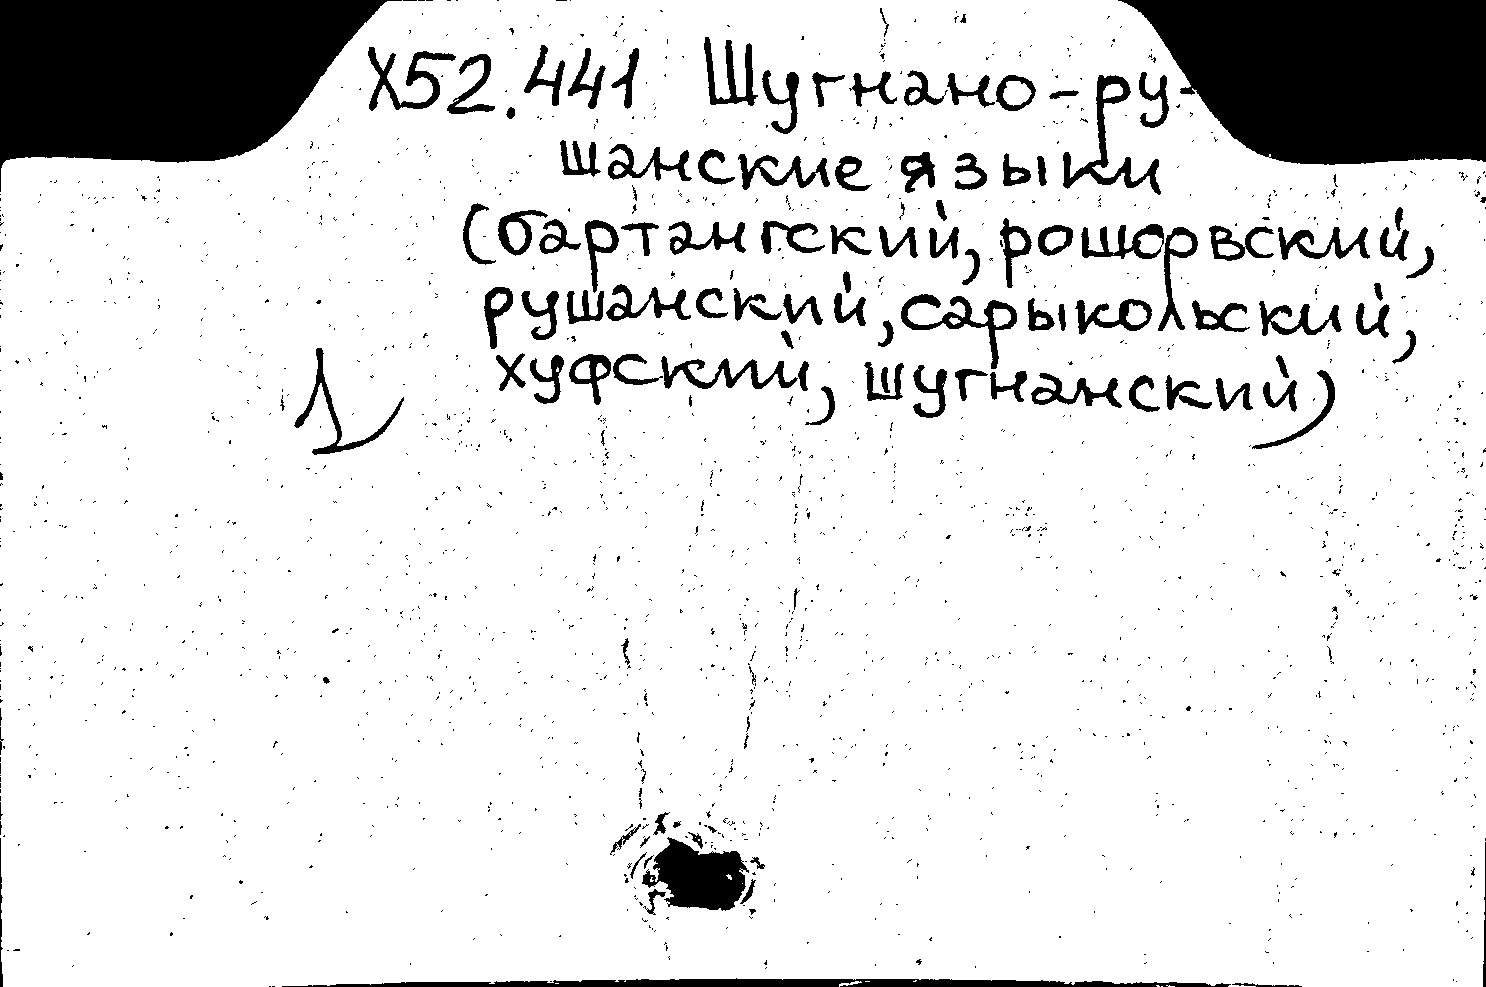 Х52.441 Шугнано-ру-
шанские языки
(бартангский, рошорвский,
рушанский, сарыкольский,
хуфский, шугнанский)
1